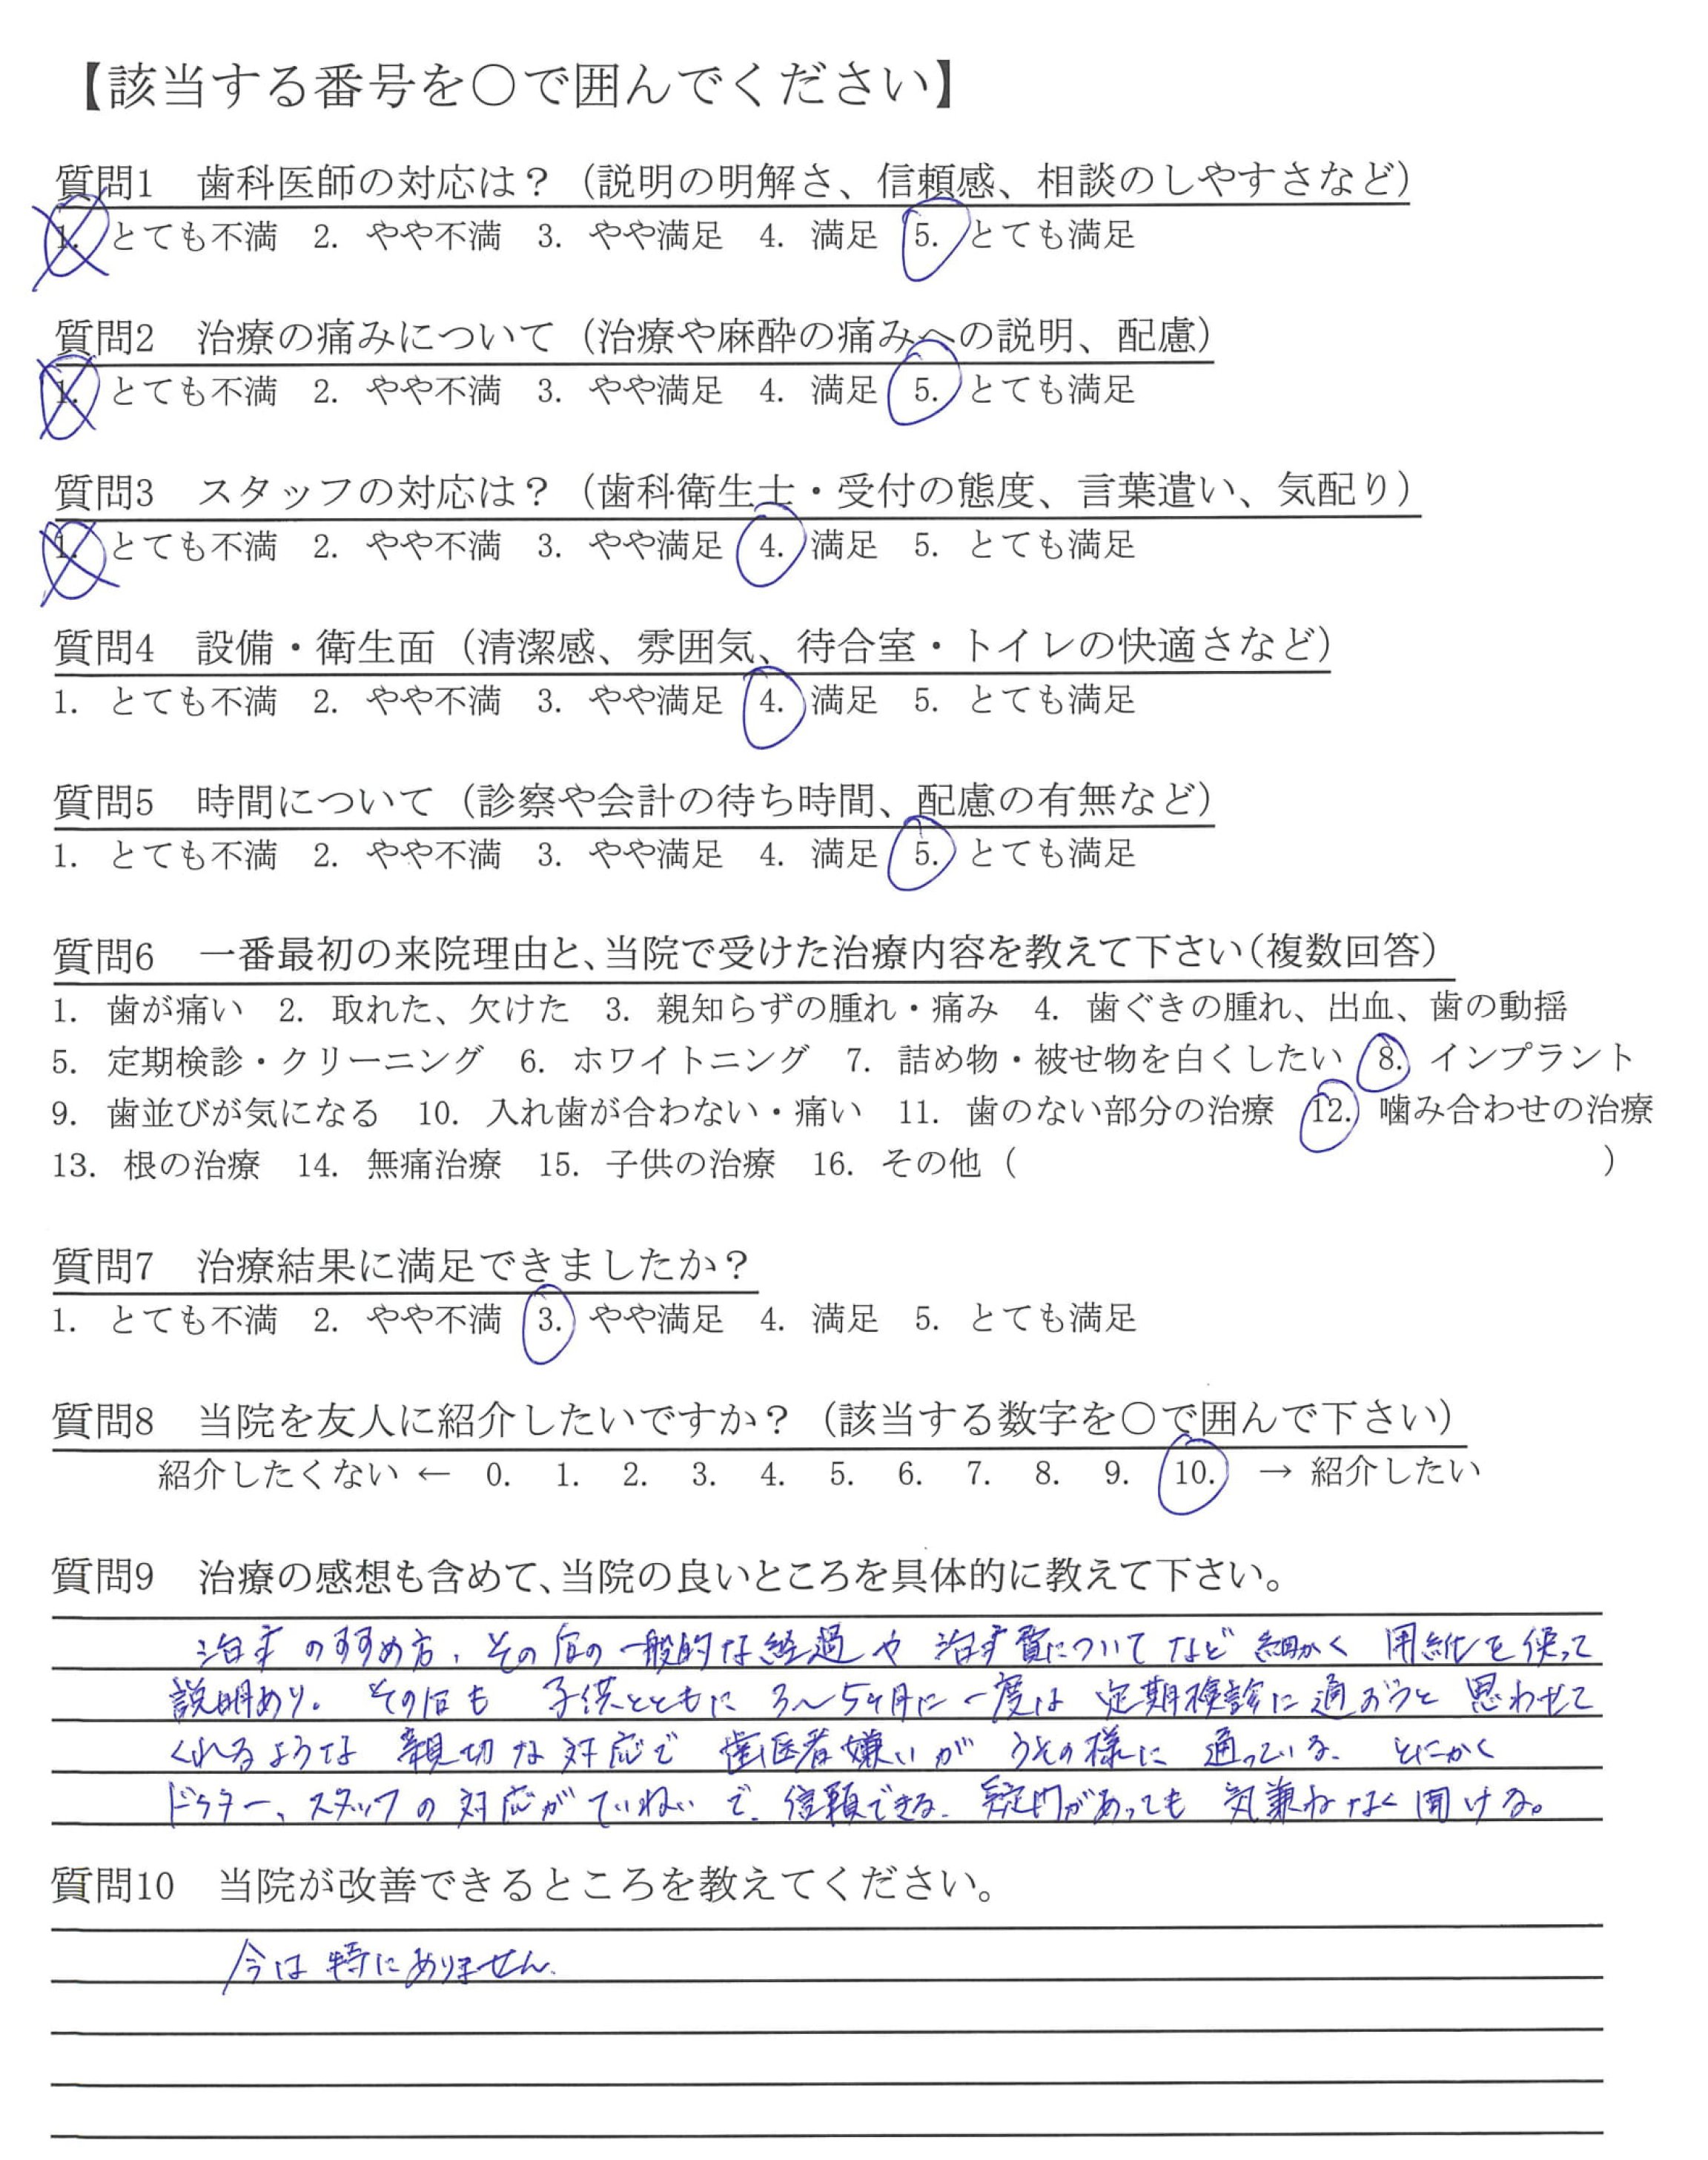 【該当する番号を○で囲んでください】
質問1 歯科医師の対応は？（説明の明解さ、信頼感、相談のしやすさなど）
1. とても不満 2. やや不満 3. やや満足 4. 満足 5. とても満足
質問2 治療の痛みについて（治療や麻酔の痛みへの説明、配慮）
1. とても不満 2. やや不満 3. やや満足 4. 満足 5. とても満足
質問3 スタッフの対応は？（歯科衛生士・受付の態度、言葉遣い、気配り）
1. とても不満 2. やや不満 3. やや満足 4. 満足 5. とても満足
質問4 設備・衛生面（清潔感、雰囲気、待合室・トイレの快適さなど）
1. とても不満 2. やや不満 3. やや満足 4. 満足 5. とても満足
質問5 時間について（診察や会計の待ち時間、配慮の有無など）
1. とても不満 2. やや不満 3. やや満足 4. 満足 5. とても満足
質問6 一番最初の来院理由と、当院で受けた治療内容を教えて下さい（複数回答）
1. 歯が痛い 2. 取れた、欠けた 3. 親知らずの腫れ・痛み 4. 歯ぐきの腫れ、出血、歯の動揺
5. 定期検診・クリーニング 6. ホワイトニング 7. 詰め物・被せ物を白くしたい 8. インプラント
9. 歯並びが気になる 10. 入れ歯が合わない・痛い 11. 歯のない部分の治療 12. 噛み合わせの治療
13. 根の治療 14. 無痛治療 15. 子供の治療 16. その他（ ）
質問7 治療結果に満足できましたか？
1. とても不満 2. やや不満 3. やや満足 4. 満足 5. とても満足
質問8 当院を友人に紹介したいですか？（該当する数字を○で囲んで下さい）
紹介したくない ← 0. 1. 2. 3. 4. 5. 6. 7. 8. 9. 10. → 紹介したい
質問9 治療の感想も含めて、当院の良いところを具体的に教えて下さい。
治療のすすめ方、その后の一般的な経過や 治療費についてなど 細かく 用紙を使って
説明あり。 その后も 子供とともに 3～5ヶ月に一度は 定期検診に通おうと 思わせて
くれるような 親切な対応で 歯医者嫌いが うその様に 通っている。 とにかく
ドクター、スタッフの対応がていねいで、信頼できる。疑問があっても 気兼ねなく聞ける。
質問10 当院が改善できるところを教えてください。
今は特にありません。